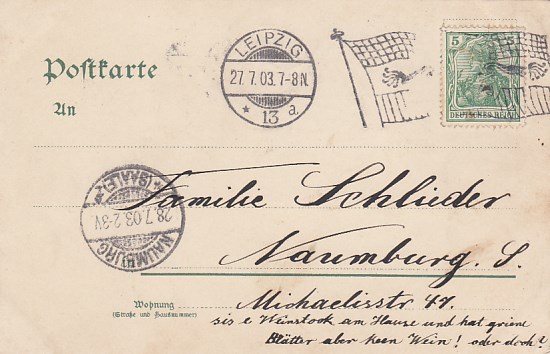 LEIPZIG
27.7.03.7-8N.
* 13 a.
5
DEUTSCHES REICH
Postkarte
An
NAUMBURG
(SAALE)
28.7.03.2-3V
Familie Schlieder
Naumburg. S.
Wohnung
(Straße und Hausnummer)
Michaelisstr 47.
sis e Weinstook am Hause und hat griene
Blätter aber keen Wein! oder doch?